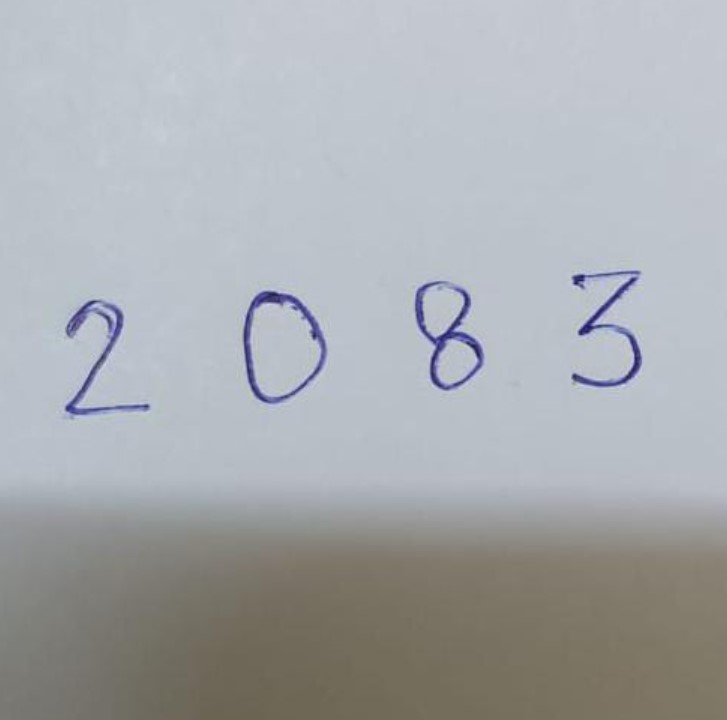 2 0 8 3